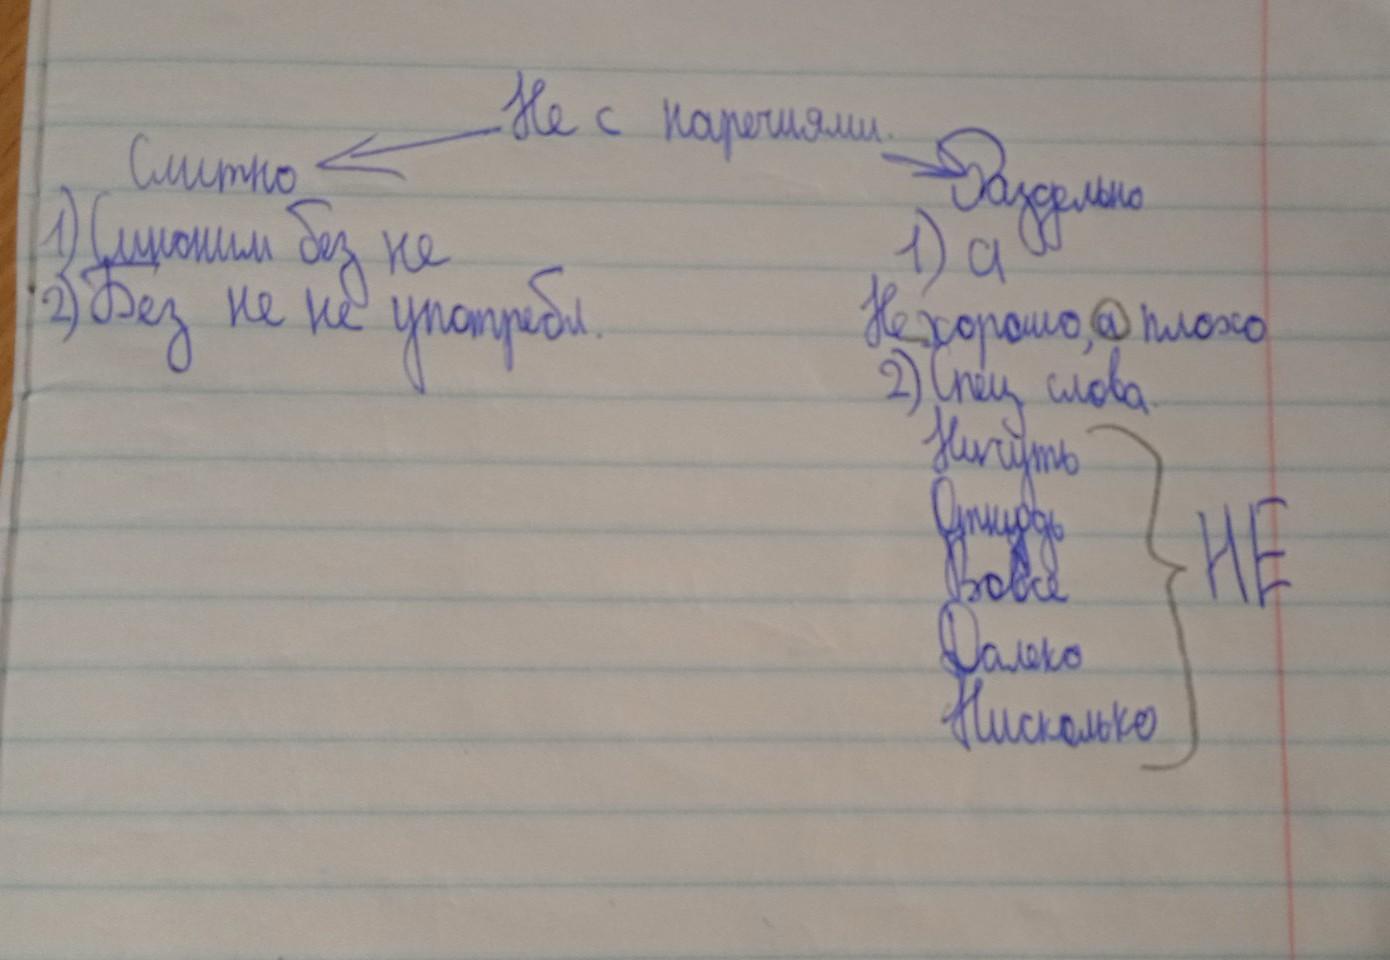 Не с наречиями.
Слитно
1) Синоним без не
2) Без не не употребл.
Раздельно
1) а
Не хорошо, а плохо
2) Спец слова.
Ничуть
Отнюдь
Вовсе
Далеко
Нисколько
НЕ